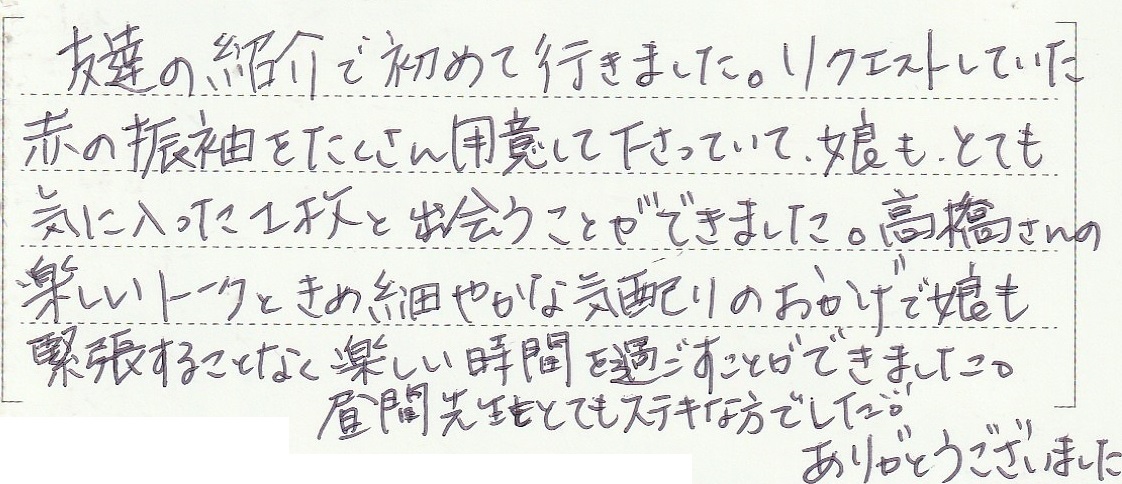 友達の紹介で初めて行きました。リクエストしていた
赤の振袖をたくさん用意して下さっていて、娘も、とても
気に入った1枚と出会うことができました。高橋さんの
楽しいトークときめ細やかな気配りのおかげで娘も
緊張することなく楽しい時間を過ごすことができました。
昼間先生もとてもステキな方でした。
ありがとうございました